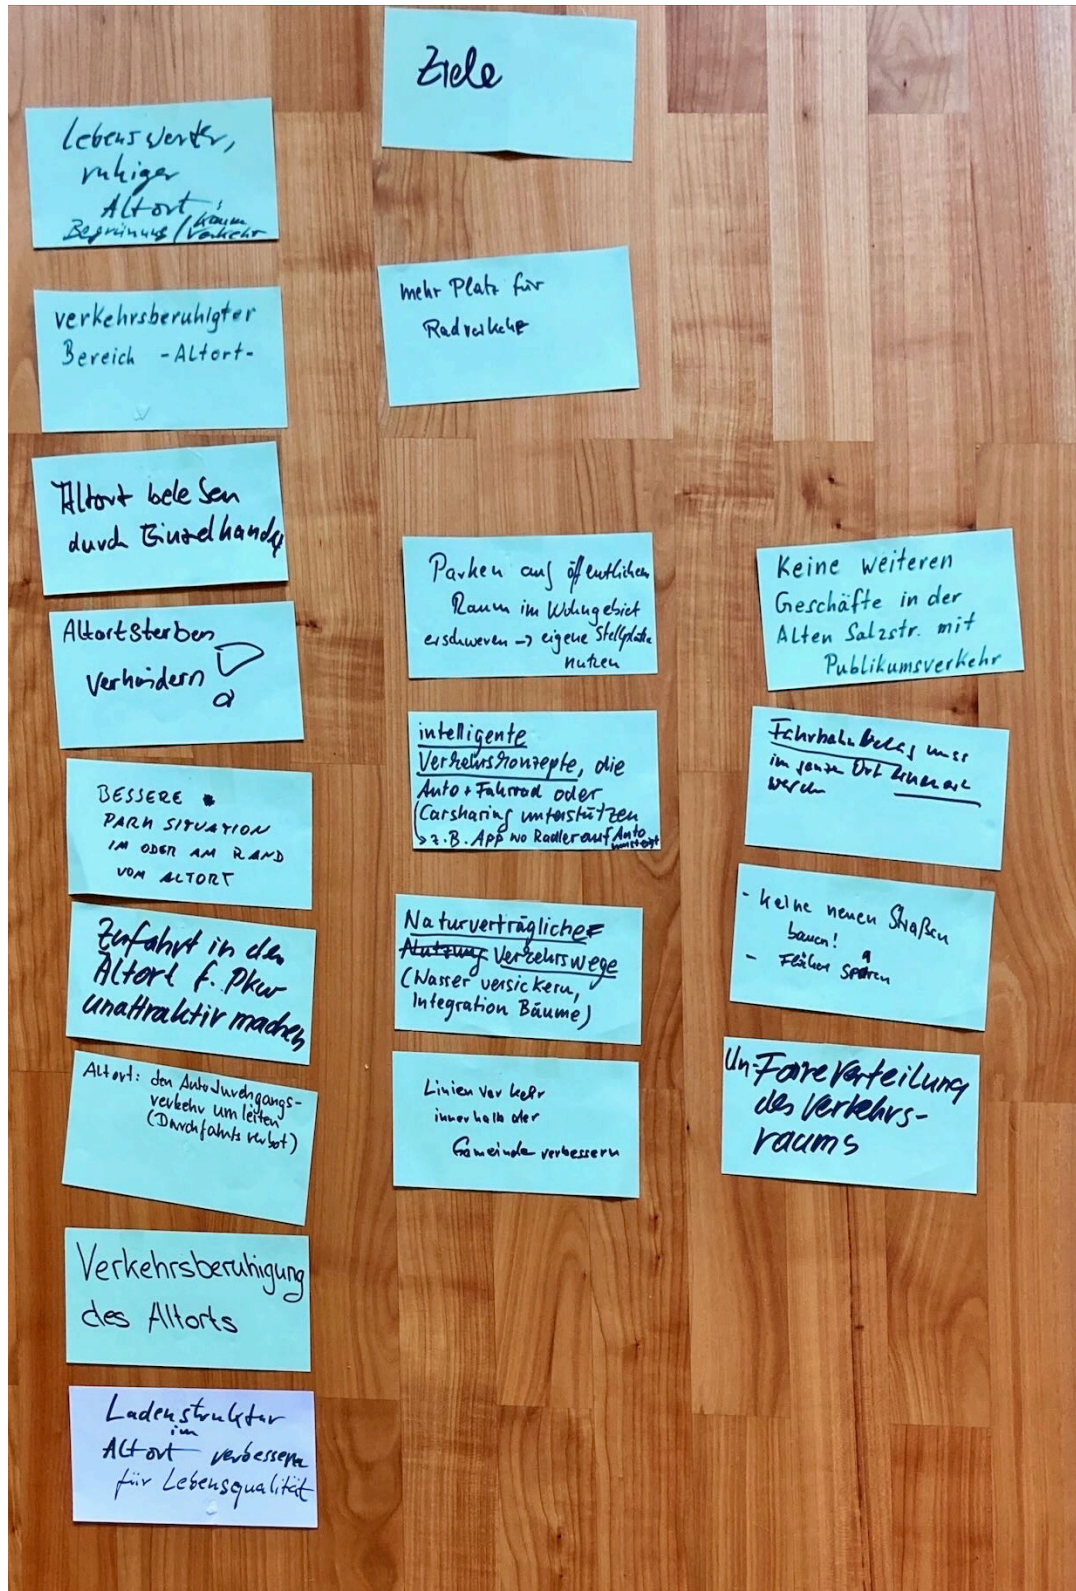 Ziele
Lebenswerter,
ruhiger
Altort:
Begrünung / kaum
Verkehr
verkehrsberuhigter
Bereich -Altort-
Altort bele Sen
durch Einzelhandel
Altortsterben
verhindern
BESSERE
PARK SITUATION
IM ODER AM RAND
VOM ALTORT
Zufahrt in den
Altort f. Pkw
unattraktiv machen
Altort: den Autodurchgangs-
verkehr umleiten
(Durchfahrtsverbot)
Verkehrsberuhigung
des Altorts
Ladenstruktur
im
Altort verbessern
für Lebensqualität
mehr Platz für
Radverkehr
Parken auf öffentlichem
Raum im Wohngebiet
erschweren → eigene Stellplätze
nutzen
intelligente
Verkehrskonzepte, die
Auto + Fahrrad oder
Carsharing unterstützen
→ z.B. App wo Radler auf Auto
umsteigt
Naturverträgliche
Nutzung Verkehrswege
(Wasser versickern,
Integration Bäume)
Linienverkehr
innerhalb der
Gemeinde verbessern
Keine weiteren
Geschäfte in der
Alten Salzstr. mit
Publikumsverkehr
Fahrbahnbelag muss
im ganzen Ort
werden
- Keine neuen Straßen
bauen!
- Flächen sparen
Un-Faire Verteilung
des Verkehrs-
raums